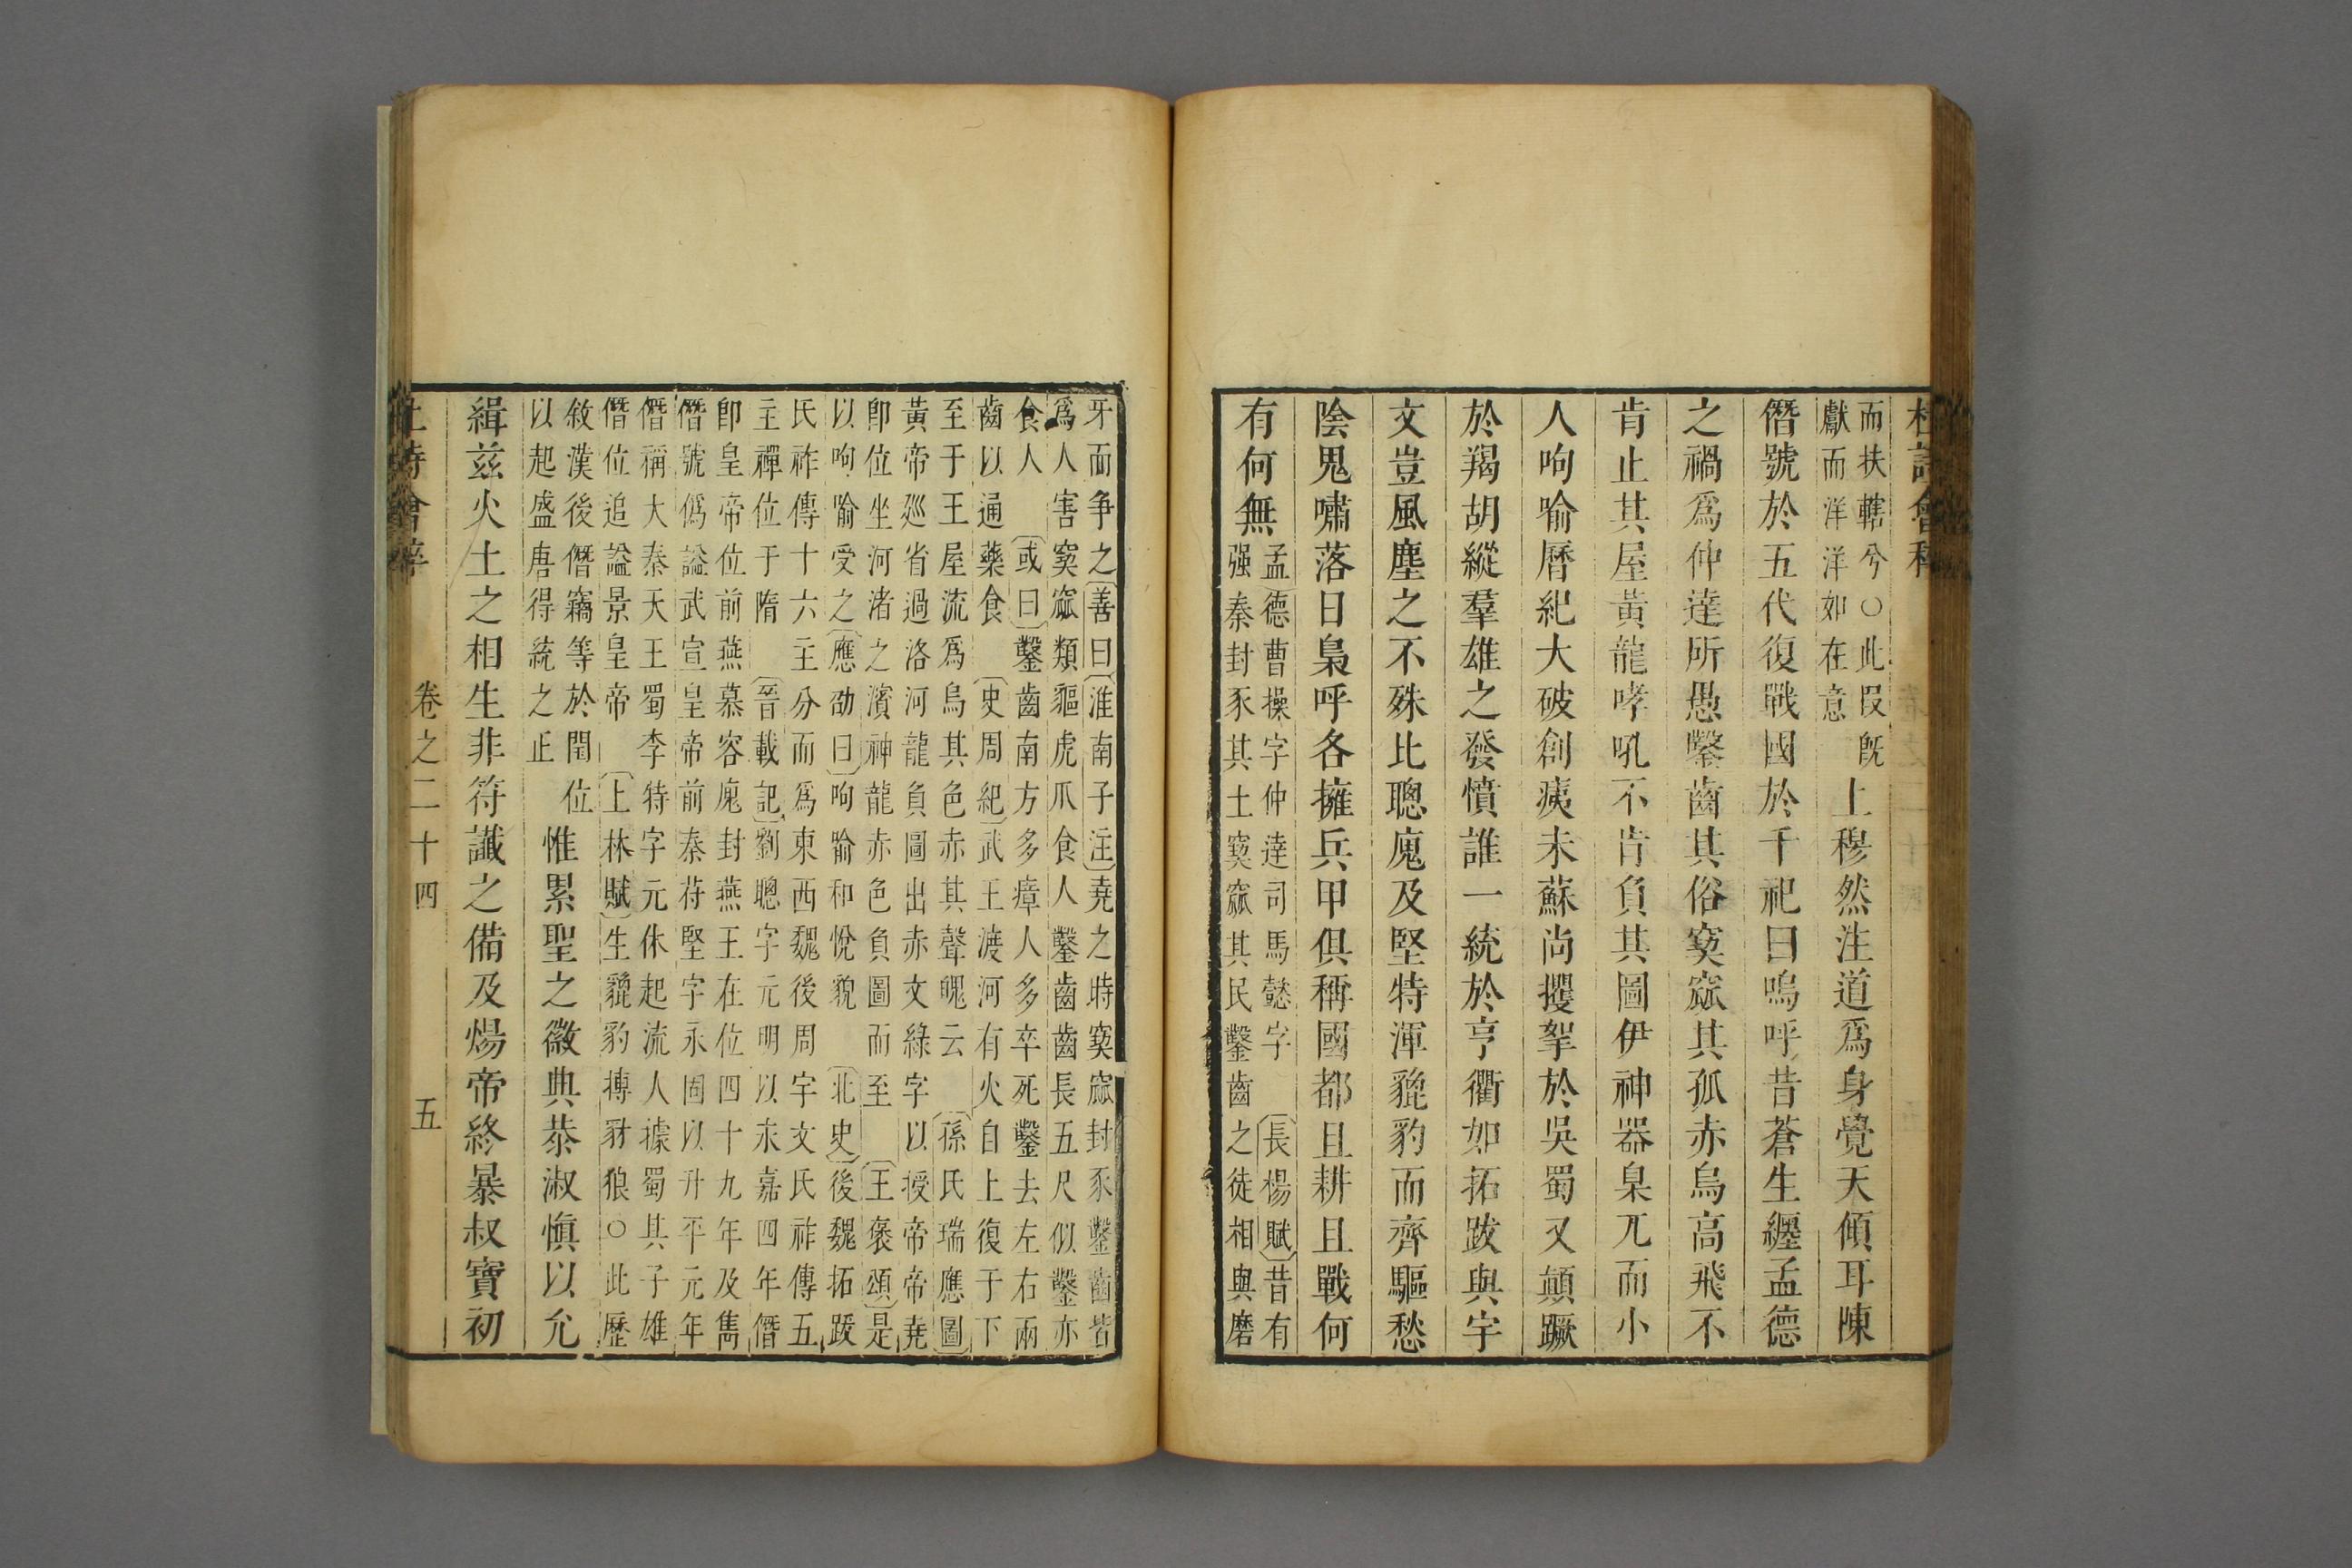 杜詩會稡
而扶轄兮○此叚旣
獻而洋洋如在意
上穆然注道爲身覺天傾耳陳
僭號於五代復戰國於千祀曰嗚呼昔蒼生纒孟德
之禍爲仲達所愚鑿齒其俗窫窳其孤赤烏高飛不
肯止其屋黃龍哮吼不肯負其圖伊神器臬兀而小
人呴喻曆紀大破創痍未蘇尚攫拏於吳蜀又顛躓
於羯胡縱羣雄之發憤誰一統於亨衢如拓跋與宇
文豈風塵之不殊比聰廆及堅特渾貔豹而齊驅愁
陰鬼嘯落日梟呼各擁兵甲俱稱國都且耕且戰何
有何無
孟德曹操字仲達司馬懿字 長楊賦昔有
强秦封豕其土窫窳其民鑿齒之徒相與磨
牙而争之善曰淮南子注堯之時窫窳封豕鑿齒皆
爲人害窫窳類貙虎爪食人鑿齒齒長五尺似鑿亦
食人 或曰鑿齒南方多瘴人多卒死鑿去左右兩
齒以通藥食 史周紀武王渡河有火自上復于下
至于王屋流爲烏其色赤其聲魄云 孫氏瑞應圖
黃帝廵省過洛河龍負圖出赤文綠字以授帝帝堯
卽位坐河渚之濱神龍赤色負圖而至 王褒頌是
以呴喻受之應劭曰呴喻和悅貌 北史後魏拓跋
氏祚傳十六主分而爲東西魏後周宇文氏祚傳五
主禪位于隋 晉載記劉聰字元明以永嘉四年僭
卽皇帝位前燕慕容廆封燕王在位四十九年及雋
僭號僞謚武宣皇帝前秦苻堅字永固以升平元年
僭稱大秦天王蜀李特字元休起流人據蜀其子雄
僭位追謚景皇帝 上林賦生貔豹搏豺狼○此歷
敘漢後僭竊等於閏位
以起盛唐得統之正
惟累聖之徽典恭淑愼以允
緝茲火土之相生非符讖之備及煬帝終暴叔寶初
杜詩會稡 卷之二十四 五